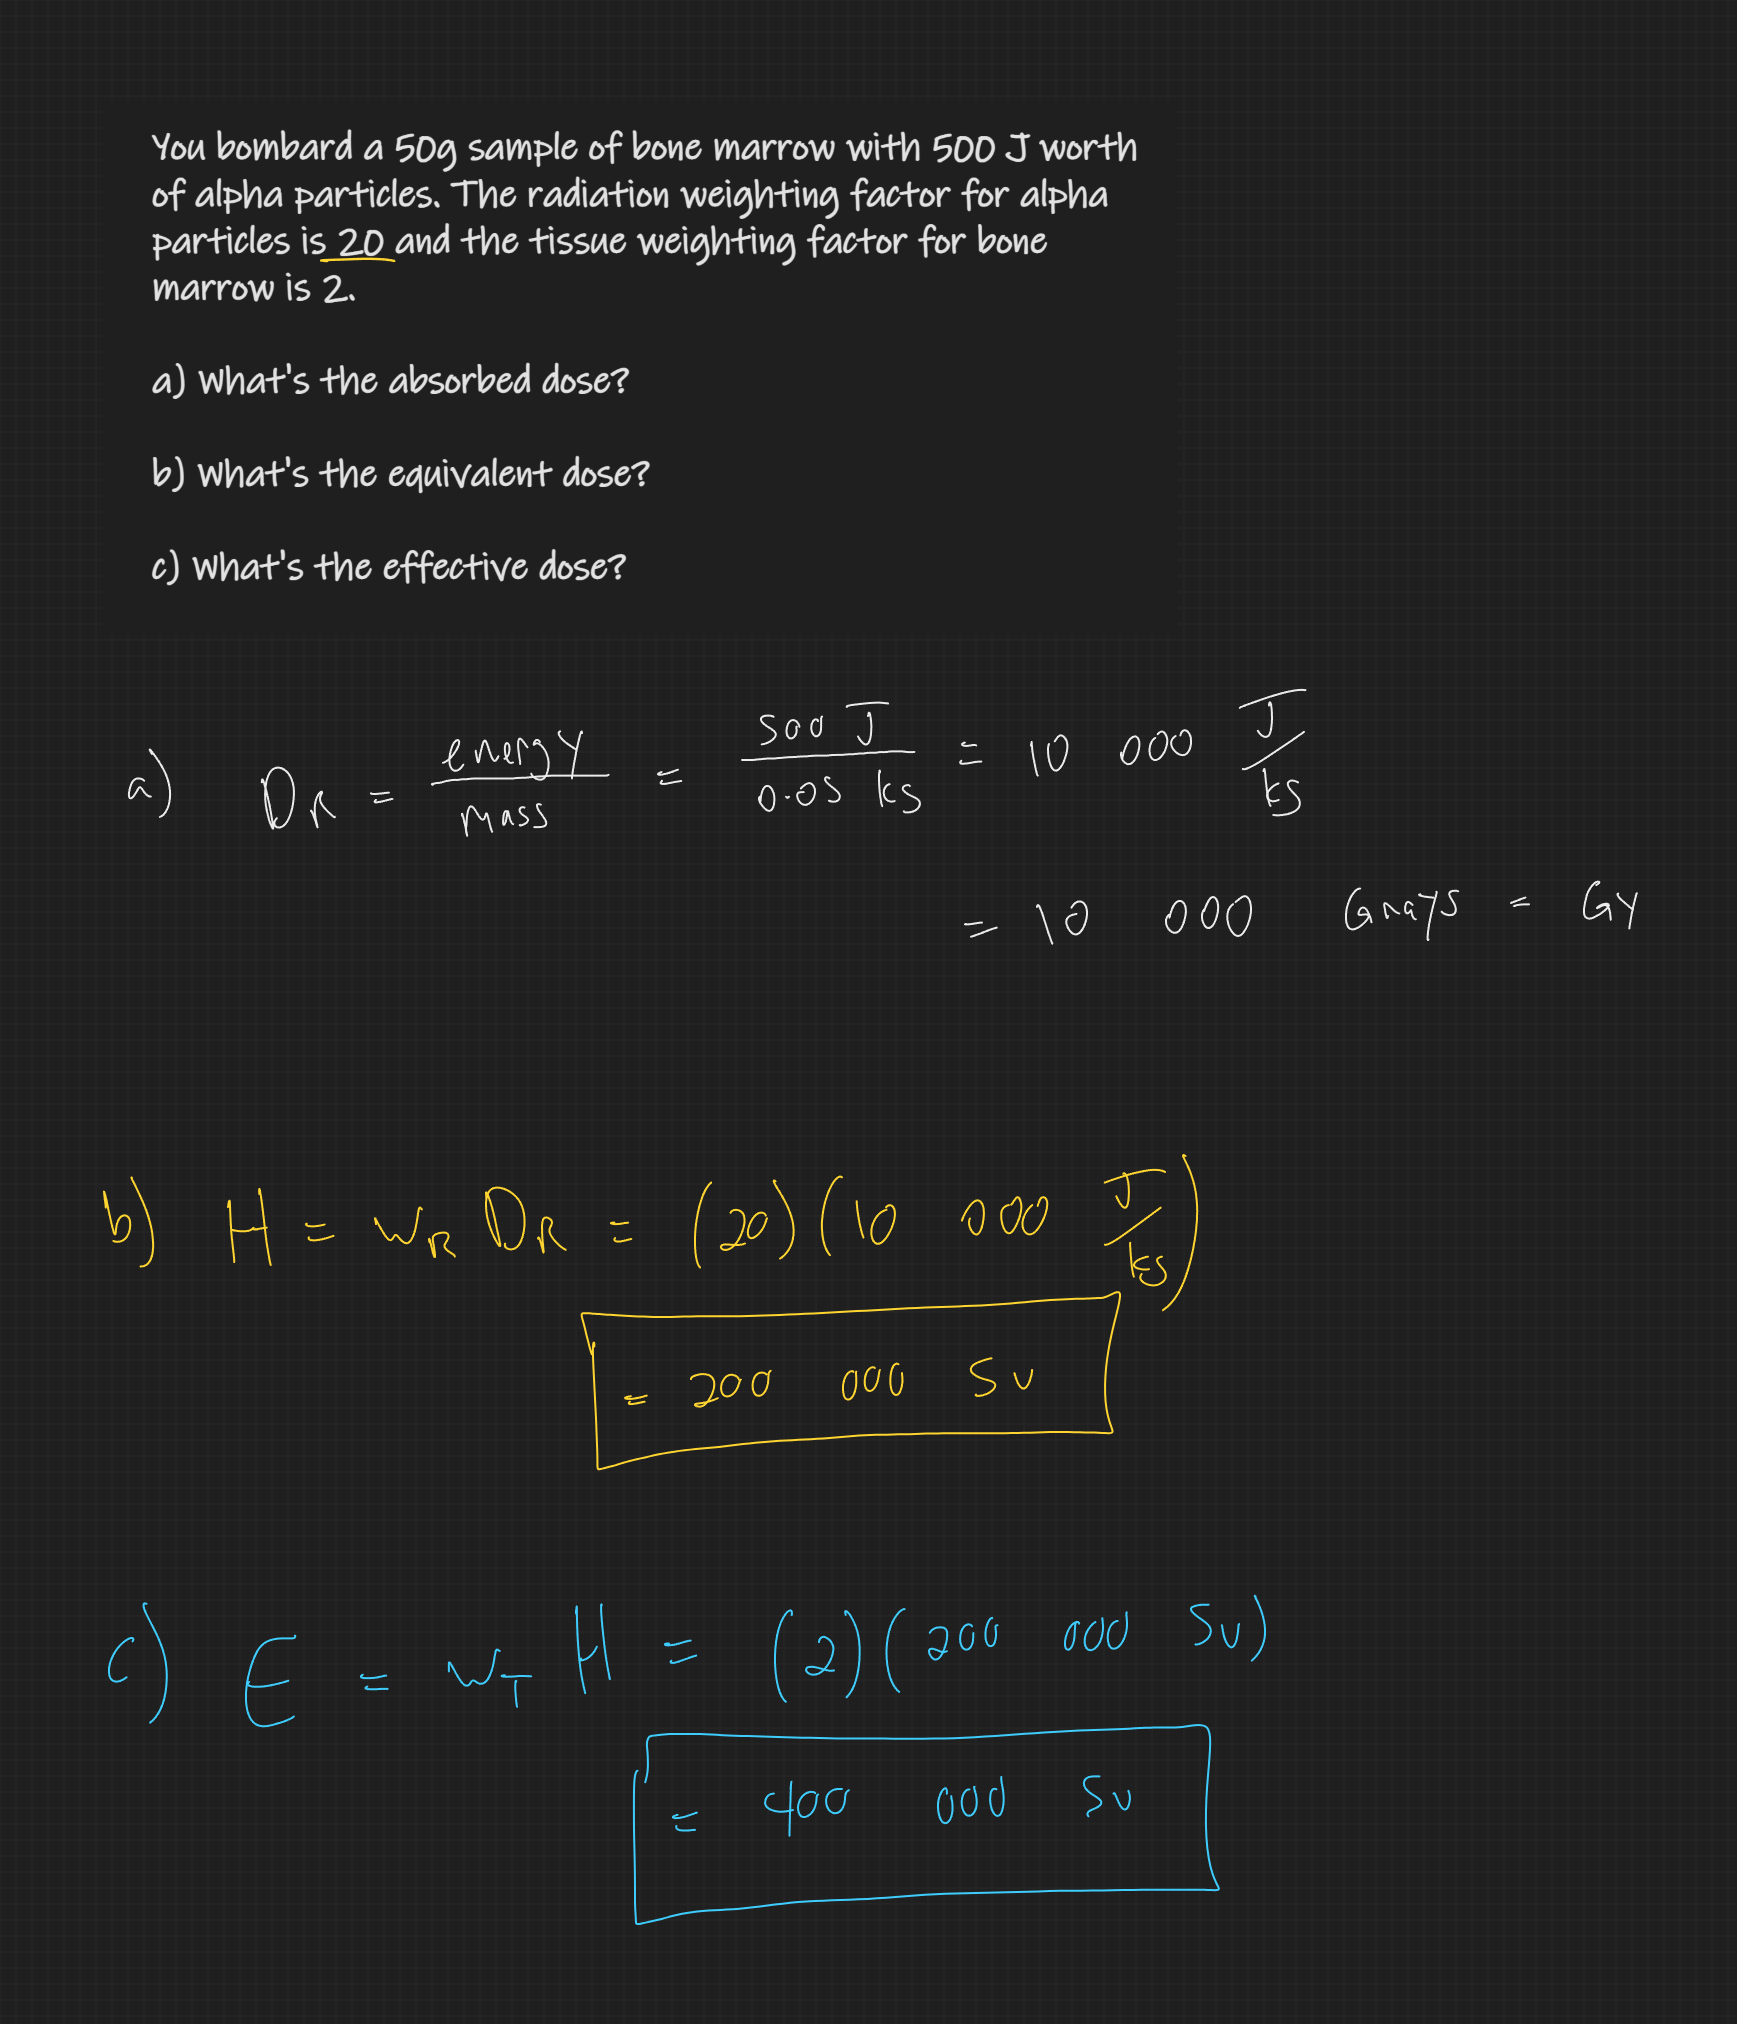 You bombard a 50g sample of bone marrow with 500 J worth
of alpha particles. The radiation weighting factor for alpha
particles is 20 and the tissue weighting factor for bone
marrow is 2.
a) What's the absorbed dose?
b) What's the equivalent dose?
c) What's the effective dose?
a) D_R = energy/mass = 500 J/0.05 kg = 10 000 J/kg
= 10 000 Grays = Gy
b) H = w_R D_R = (20)(10 000 J/kg)
= 200 000 Sv
c) E = w_T H = (2)(200 000 Sv)
= 400 000 Sv